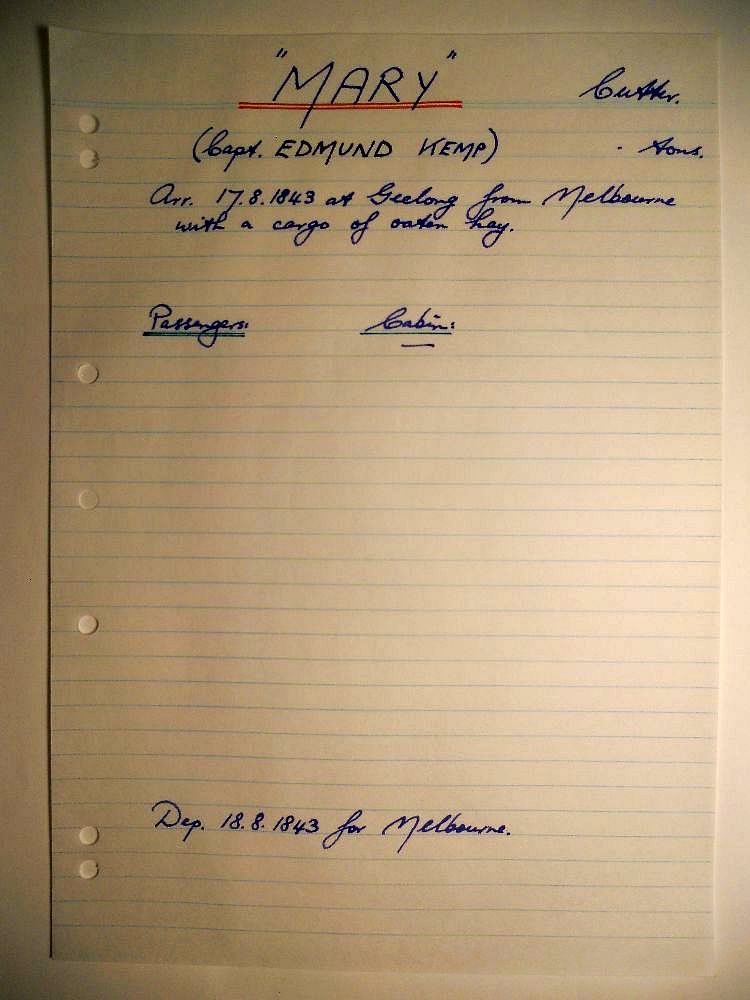 "MARY"
Cutter.
(Capt. EDMUND KEMP)
· tons.
Arr. 17.8.1843 at Geelong from Melbourne
with a cargo of oaten hay.
Passengers: Cabin:
—
Dep. 18.8.1843 for Melbourne.